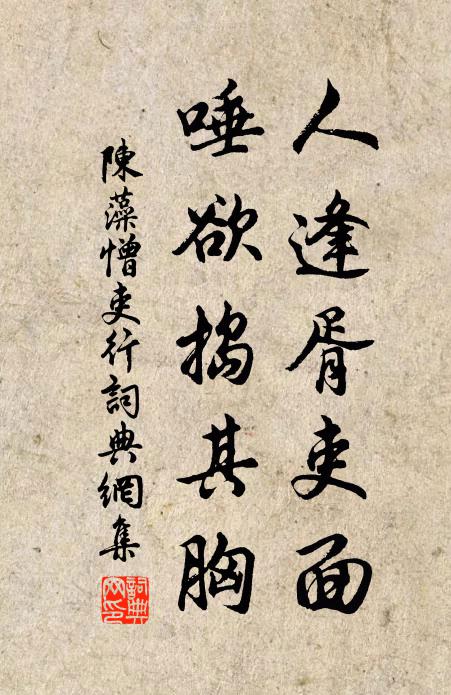 人逢胥吏面
唾欲搗其胸
陳藻憎吏行詞典網集
詞典網印